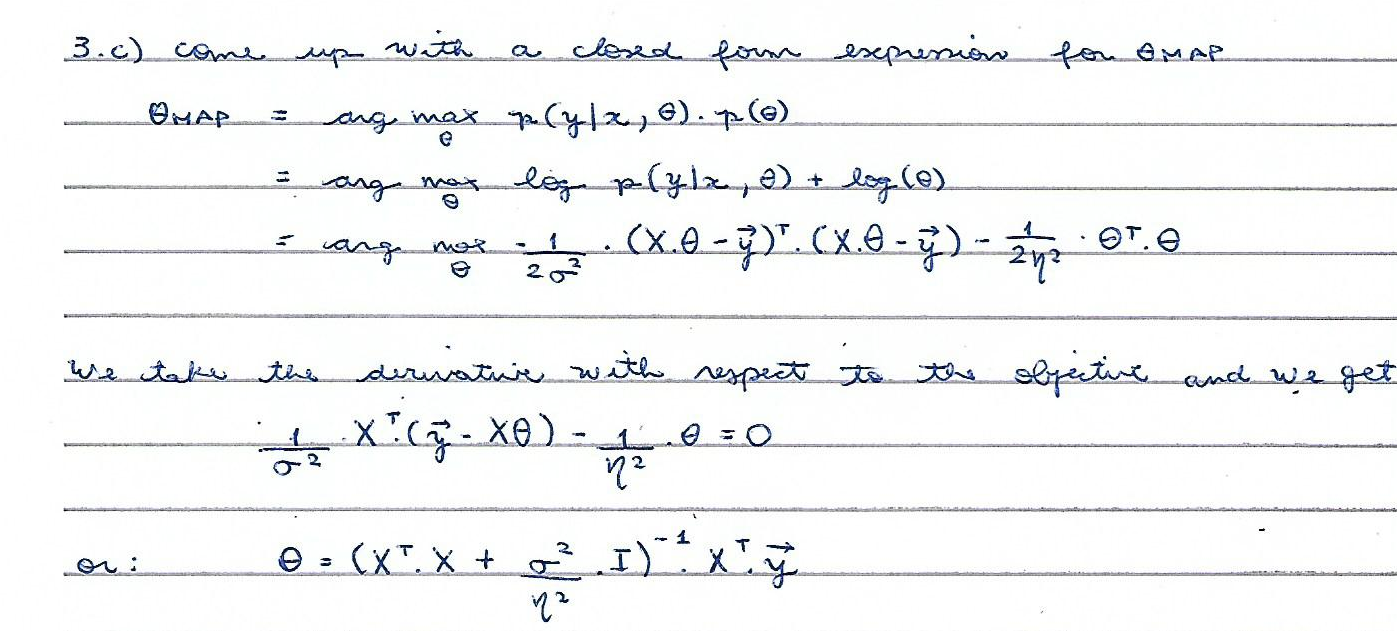 3.c) come up with a closed form expression for θMAP
θMAP = arg max_θ p(y|x, θ). p(θ)
= arg max_θ log p(y|x, θ) + log(θ)
= arg max_θ - 1/2σ² . (X.θ - y⃗)ᵀ. (X.θ - y⃗) - 1/2η² . θᵀ.θ
We take the derivative with respect to the objective and we get
1/σ² . Xᵀ.(y⃗ - Xθ) - 1/η² .θ = 0
or: θ = (Xᵀ.X + σ²/η² .I)⁻¹. Xᵀ.y⃗